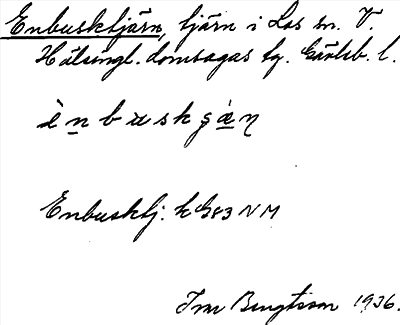 Enbusktjärn, tjärn i Los sn. V.
Hälsingl. domsagas tg. Gävleb. l.
Enbusktj. k G83 NM
Ivar Bengtsson 1936.